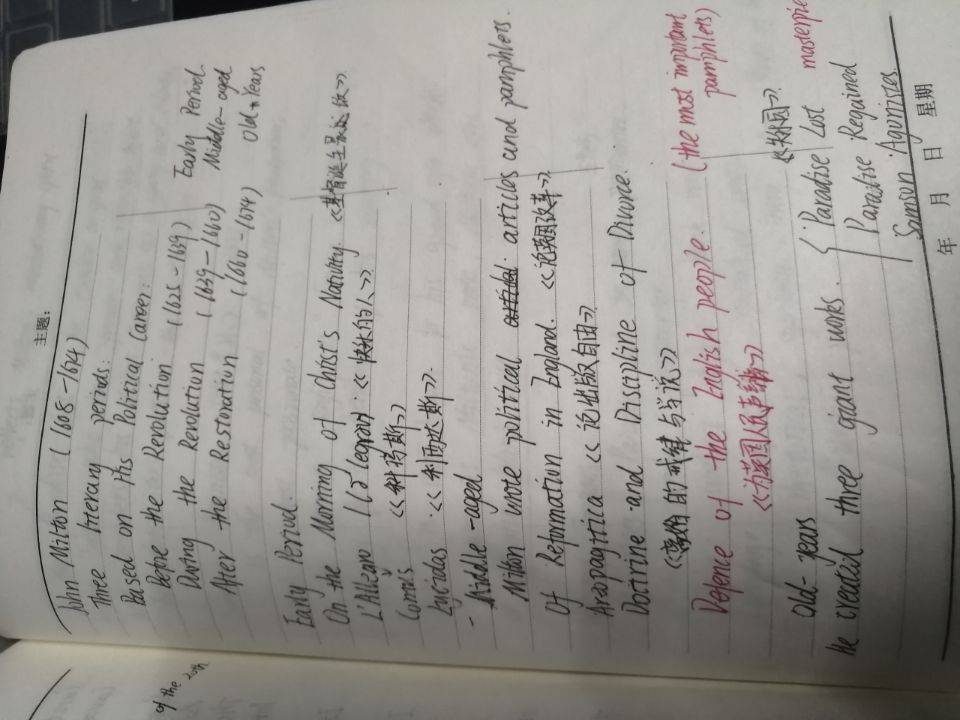 主题:
John Milton (1608-1674)
Three literary periods:
Based on His Political Career:
Before the Revolution (1625-1639) Early Period
During the Revolution (1639-1660) Middle-aged
After the Restoration (1660-1674) Old Years
Early Period.
On the Morning of Christ's Nativity 《基督诞生
L'Allegro 《快乐的人》
Comus 《科马斯》
Lycidas 《利西达斯》.
- Middle-aged
Milton wrote political articles and pamphlets.
Of Reformation in England. 《论英国改革》
Areopagitica 《论出版自由》
Doctrine and Discipline of Divorce.
《离婚的戒律与学说》
Defence of the English people. (the most important pamphlets)
《为英国人民声辩》
Old-years 《失乐园》. masterpie
He created three giant works. { Paradise Lost
Paradise Regained
Samson Agonistes.
年 月 日 星期
of the 20th